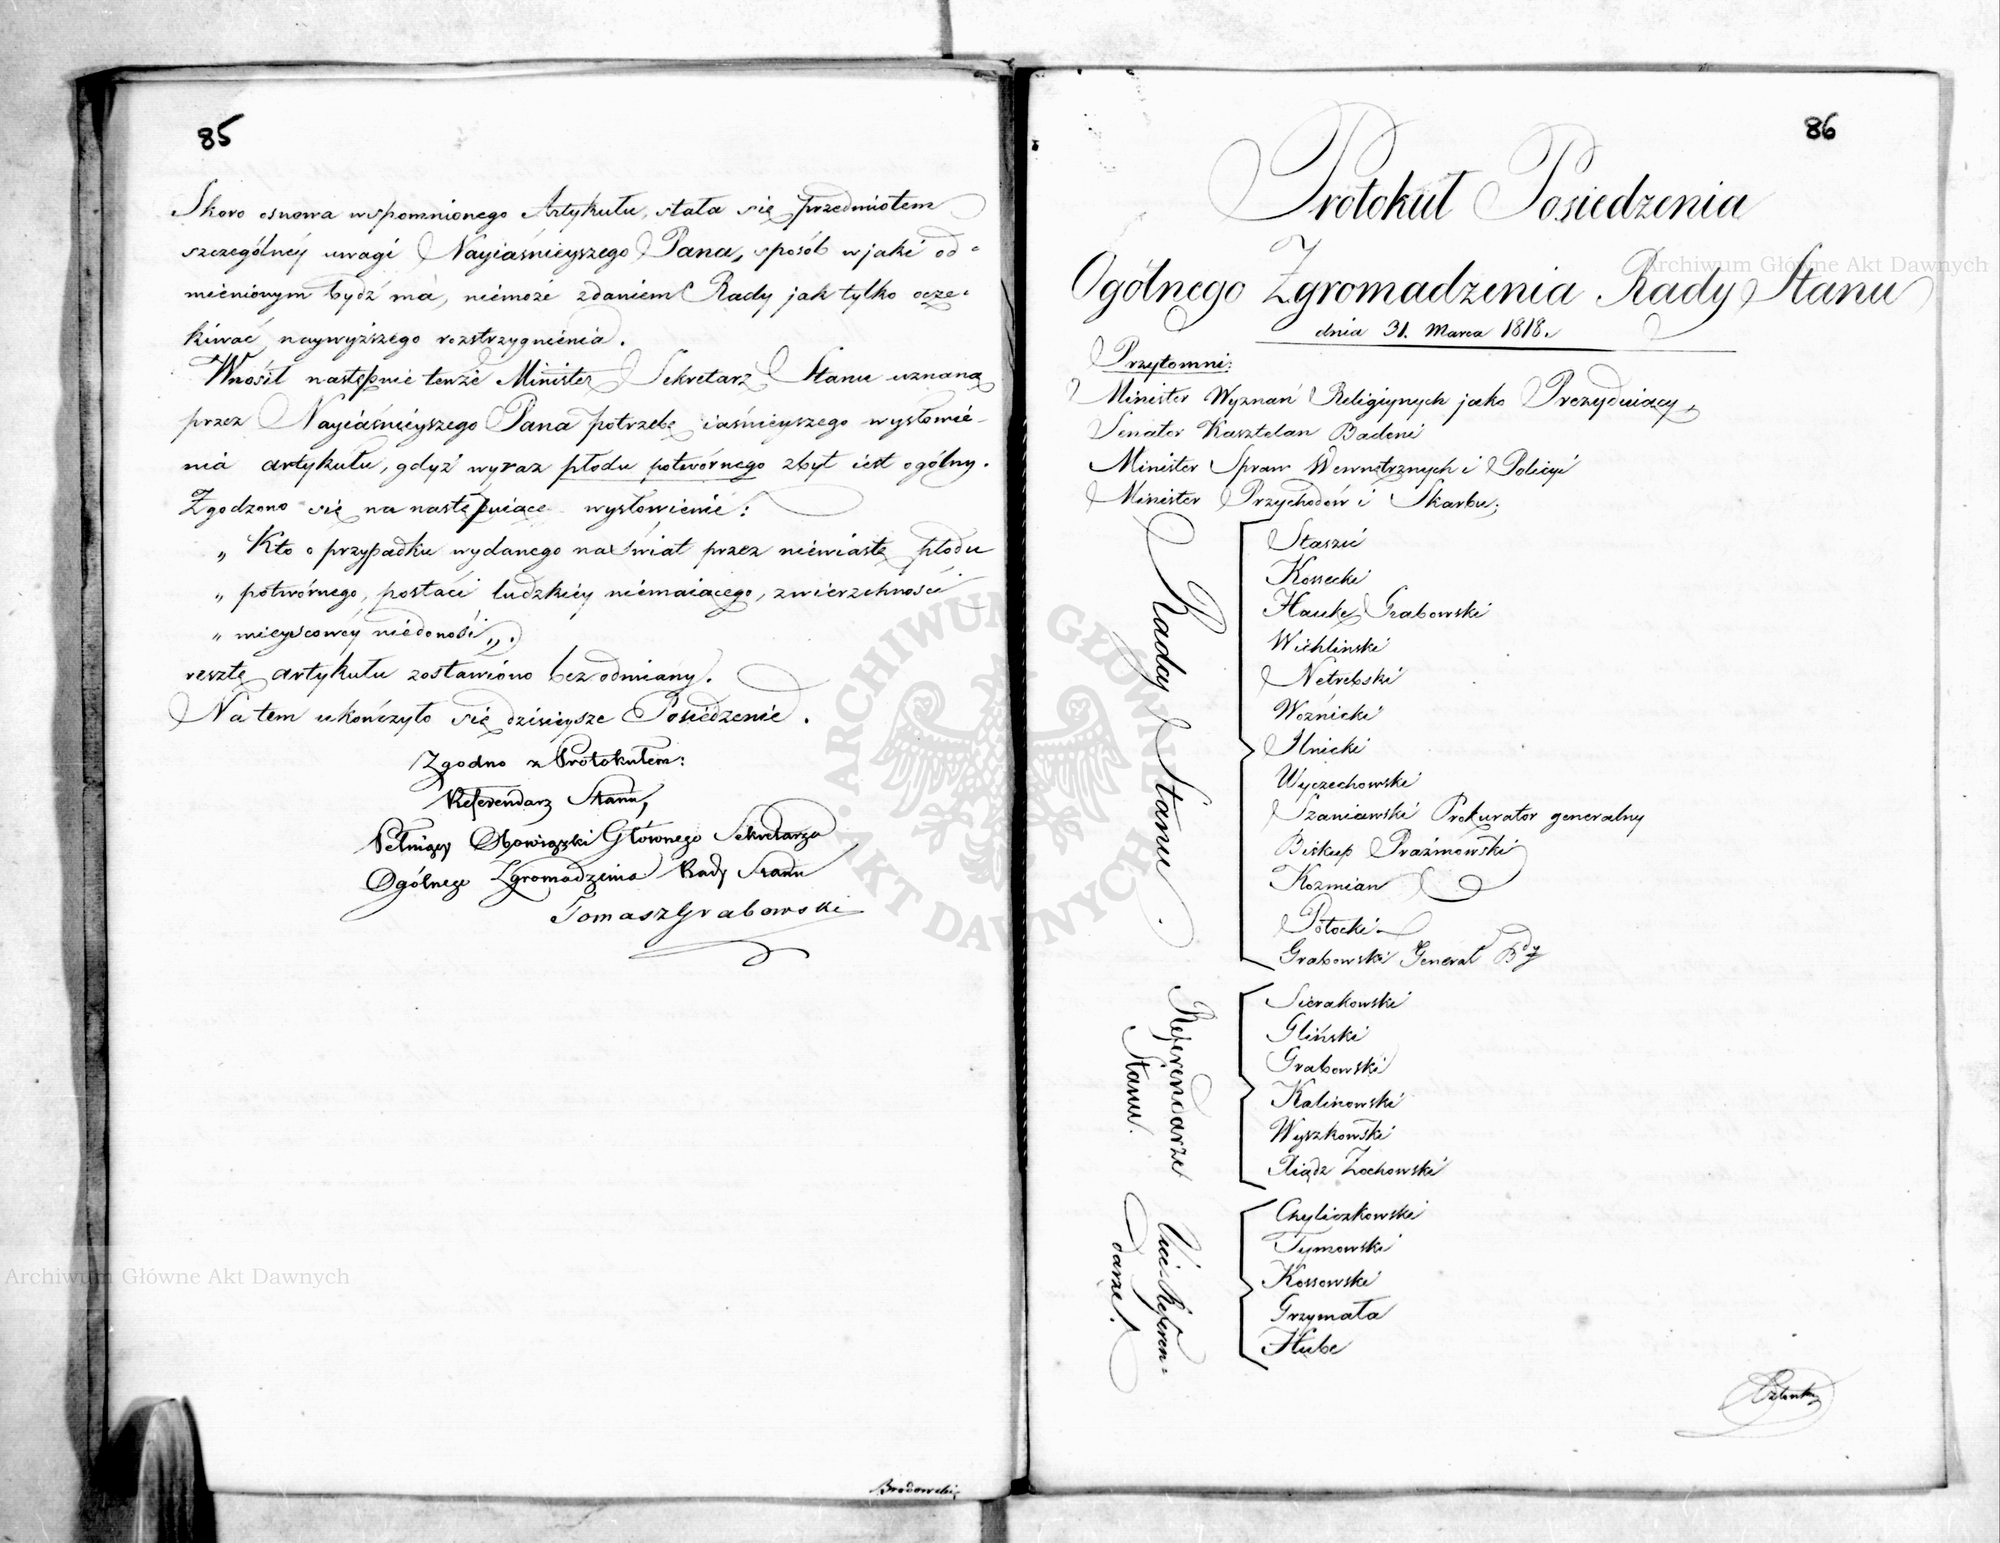 85
Skoro osnowa wspomnionego Artykułu, stała się przedmiotem
szczególnéy uwagi Nayiaśnieyszego Pana, sposób w jaki od=
mienionym bydź ma, niemoże zdaniem Rady jak tylko ocze=
kiwać naywyższego rozstrzygnienia.
Wnosił następnie tenże Minister Sekretarz Stanu uznaną
przez Nayiaśnieyszego Pana potrzebę iaśnieyszego wysłowie-
nia artykułu, gdyż wyraz płodu potwórnego zbyt iest ogólny.
Zgodzono się na następuiące wysłowienie:
„ Kto o przypadku wydanego na świat przez niewiastę płodu
„ potwórnego, postaci ludzkiéy niemaiącego, zwierzchności
„ mieyscowéy niedonosi „.
resztę artykułu zostawiono bez odmiany.
Na tem ukończyło się dzisieysze Posiedzenie.
Zgodno z Protokułem:
Referendarz Stanu,
Pełniący Obowiązki Głównego Sekretarza
Ogólnego Zgromadzenia Rady Stanu
Tomasz Grabowski
Brodowski
86
Protokuł Posiedzenia
Ogólnego Zgromadzenia Rady Stanu
dnia 31. Marca 1818.
Przytomni:
Minister Wyznań Religiynych jako Prezyduiący,
Senator Kasztelan Badeni
Minister Spraw Wewnętrznych i Policyi
Minister Przychodów i Skarbu,
Radcy Stanu.
Staszic
Kossecki
Hauke Grabowski
Wichliński
Netrebski
Woźnicki
Ilnicki
Wyczechowski
Szaniawski Prokurator generalny
Biskup Prażmowski
Koźmian
Potocki
Grabowski Generał Bdy
Referendarze
Stanu.
Sierakowski
Gliński
Grabowski
Kalinowski
Wyszkowski
Xiądz Zochowski
Vice-Referen=
darze.
Chyliczkowski
Tymowski
Kossowski
Grzymała
Hube
Archiwum Główne Akt Dawnych
Archiwum Główne Akt Dawnych
ARCHIWUM GŁÓWNE AKT DAWNYCH